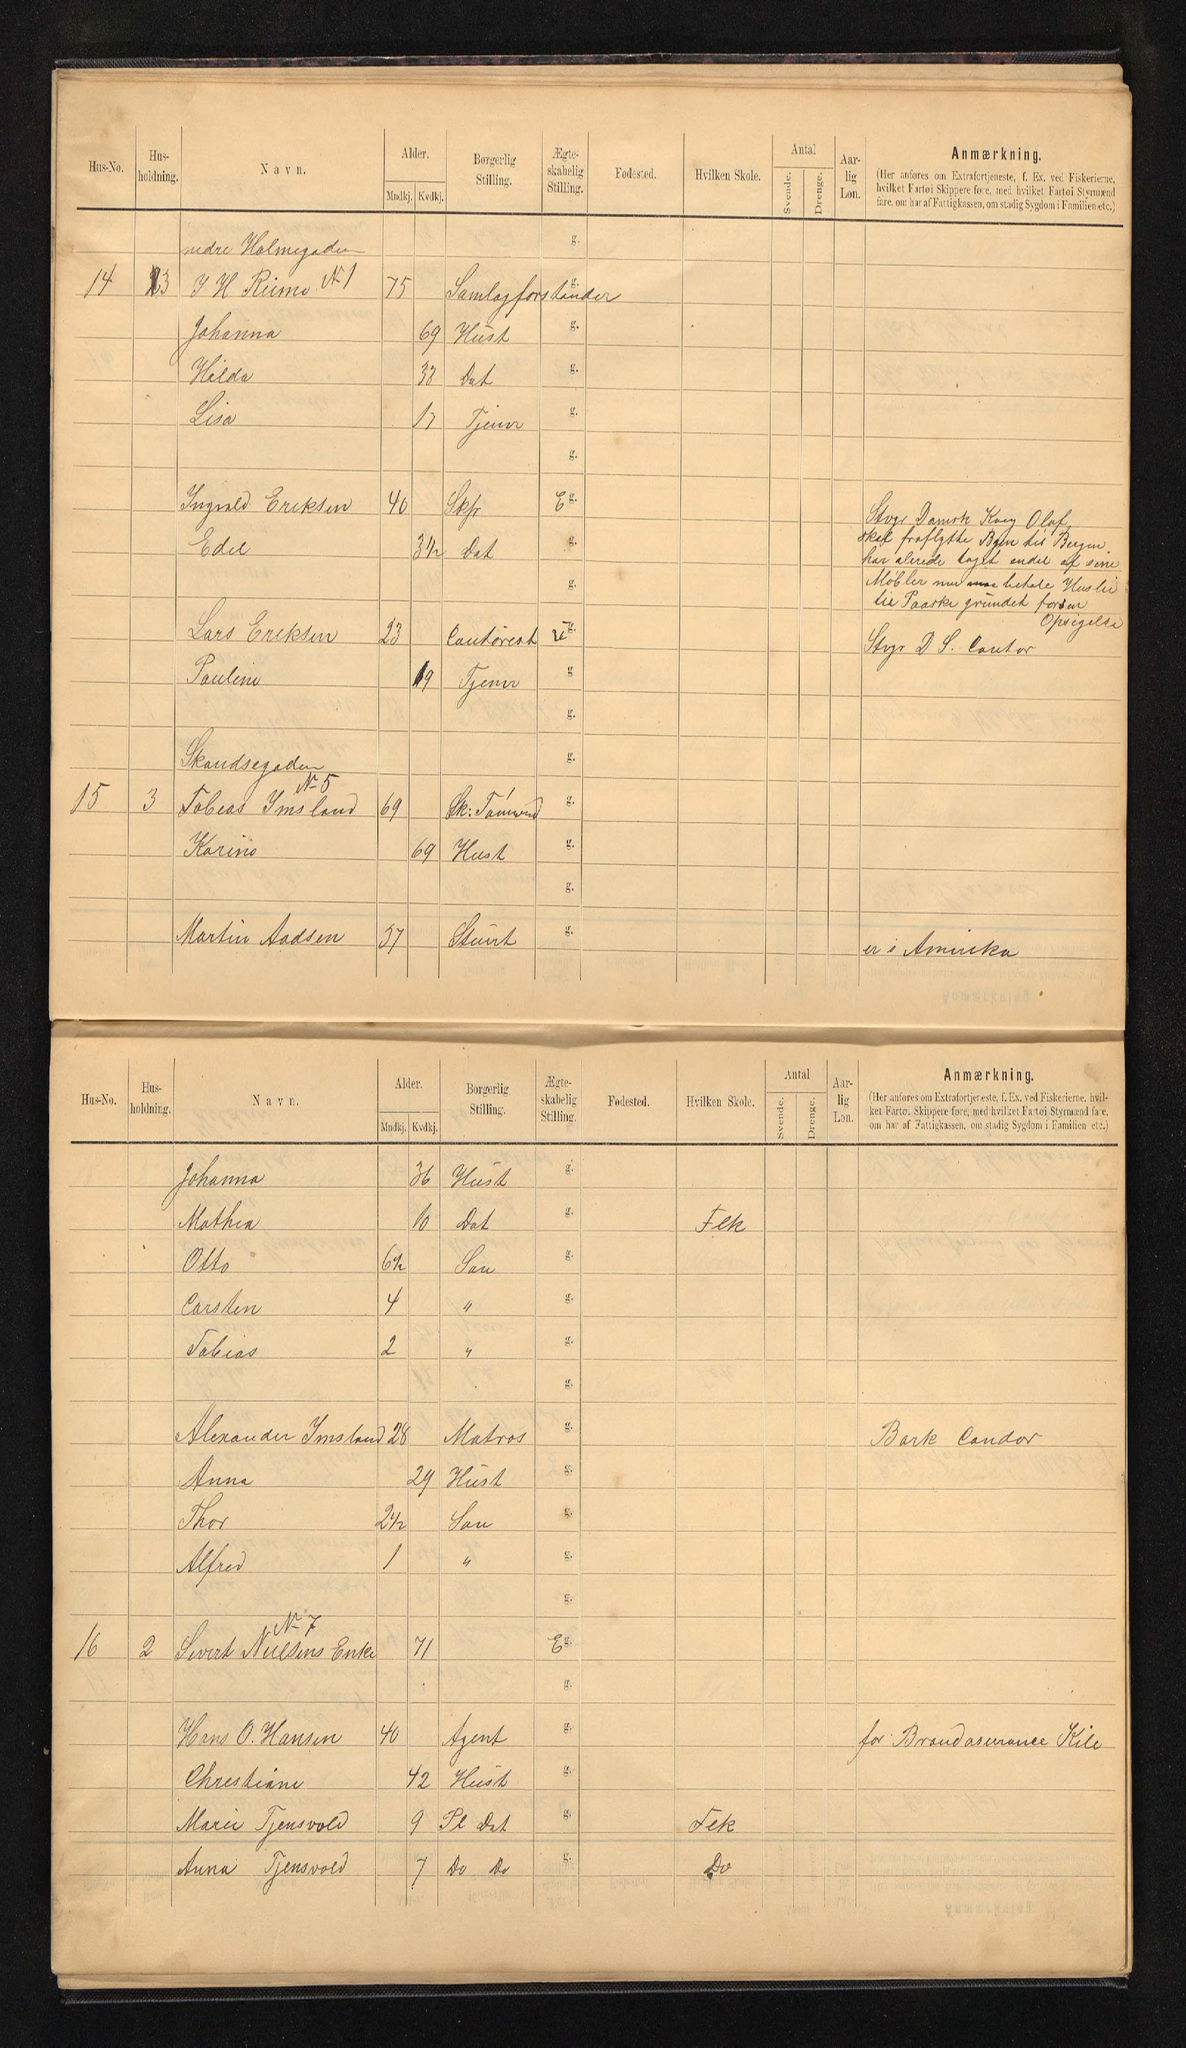 Hus-No. Hus-holdning. Navn. Alder. Mndkj. Kvdkj. Borgerlig Stilling. Ægte-skabelig Stilling. Fødested. Hvilken Skole. Antal Svende. Drenge. Aar-lig Løn. Anmærkning.
(Her anføres om Extrafortjeneste, f. Ex. ved Fiskerierne, hvilket Fartøi Skippere føre, med hvilket Fartøi Styrmænd fare, om har af Fattigkassen, om stadig Sygdom i Familien etc.)
nedre Holmegaden g.
14 3 J H Reime No 1 75 Samlagforstander g.
Johanna 69 Hust g.
Hilda 33 Dat g.
Lisa 17 Tjener g.
g.
Ingvald Eriksen 40 Skfr E g. Stvgr Damsk Kong Olaf
Edel 3½ Dat g. skal fraflytte Byen til Bergen
har alerede taget endel af sine
g. Møbler men betale Huslei
til Paaske grundet for sen
Opsigelse
Lars Eriksen 23 Contorist U g. Stvgr D. S. Contor
Pauline 19 Tjener g
g.
Skandsegaden g.
15 3 Tobias Imsland No 5 69 Sk: Tømmd g.
Karine 69 Hust g.
g.
Martin Aadsen 37 Stuert g. er i Amerika
Hus-No. Hus-holdning. Navn. Alder. Mndkj. Kvdkj. Borgerlig Stilling. Ægte-skabelig Stilling. Fødested. Hvilken Skole. Antal Svende. Drenge. Aar-lig Løn. Anmærkning.
(Her anføres om Extrafortjeneste, f. Ex. ved Fiskerierne, hvil-ket Fartøi Skippere føre, med hvilket Fartøi Styrmænd fare, om har af Fattigkassen, om stadig Sygdom i Familien etc.)
Johanna 36 Hust g.
Mathea 10 Dat g. Flk
Otto 6½ Søn g.
Carsten 4 " g.
Tobias 2 " g.
g.
Alexander Imsland 28 Matros g. Bark Condor
Anna 29 Hust g.
Thor 2½ Søn g.
Alfred 1 " g.
g.
16 2 Sivert Nielsens Enke No 7 71 E g.
g.
Hans O. Hansen 40 Agent g. for Brandasurance Kile
Christiane 42 Hust g.
Marie Tjensvold 9 Pl Dat g. Flk
Anna Tjensvold 7 Do Do g. Do